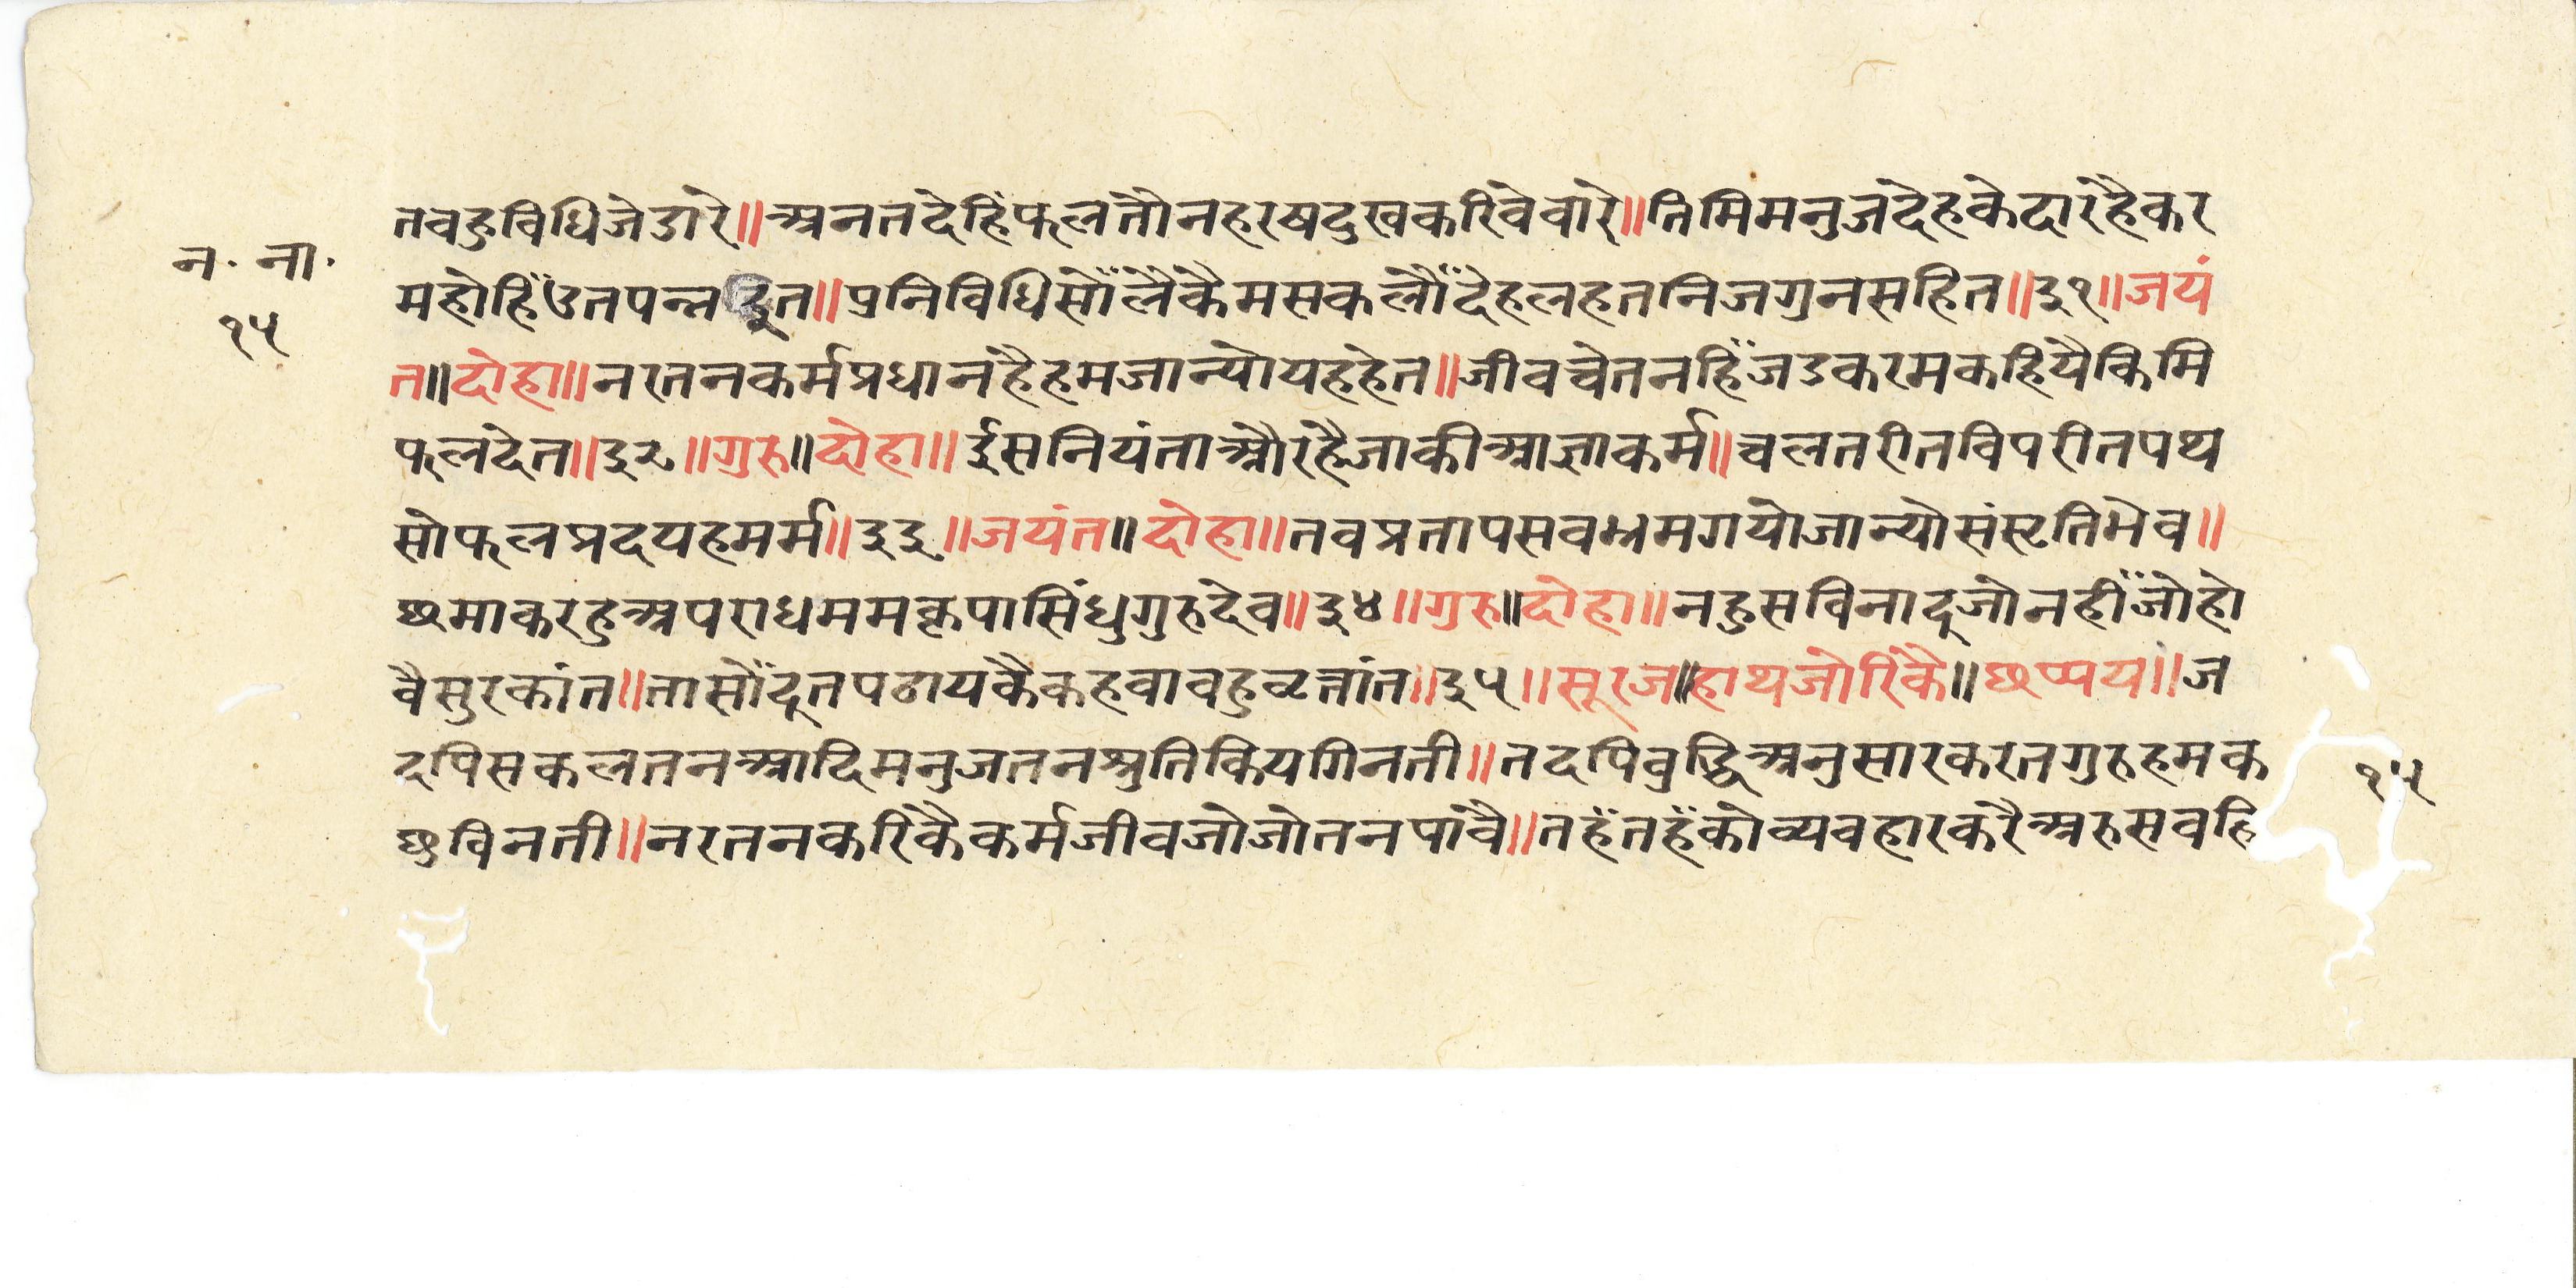 तवहुविधिजेडारे॥अनतदेहिंफलतौनहरषदुखकरिवेवारे॥तिमिमनुजदेहकेदारहैकर
न॰ ना॰
महोहिँउतपन्नइत॥प्रनिविधिसोँलैकैमसकलौँदेहलहतनिजगुनसहित॥३१॥जयं
१५
त॥दोहा॥नरतनकर्मप्रधानहैहमजान्योयहहेत॥जीवचेतनहिँजडकरमकहियैकिमि
फलदेत॥३२॥गुरु॥दोहा॥ईसनियंताऔरहैजाकीआज्ञाकर्म॥चलतरीतविपरीतपथ
सोफलप्रदयहमर्म॥३३॥जयंत॥दोहा॥तवप्रतापसवभ्रमगयोजान्योसंसृतिभेव॥
छमाकरहुअपराधममकृपासिंधुगुरुदेव॥३४॥गुरु॥दोहा॥नहुसविनादूजोनहीँजोहो
वैसुरकांत॥तासोँदूतपठायकैकहवावहुवृत्तांत॥३५॥सूरज॥हाथजोरिकै॥छप्पय॥ज
दपिसकलतनआदिमनुजतनश्रुतिकियगिनती॥तदपिवुद्धिअनुसारकरतगुरुहमक
१५
छुविनती॥नरतनकरिकैकर्मजीवजोजोतनपांवै॥तहँतहँकोव्यवहारकरैअरुसवहि